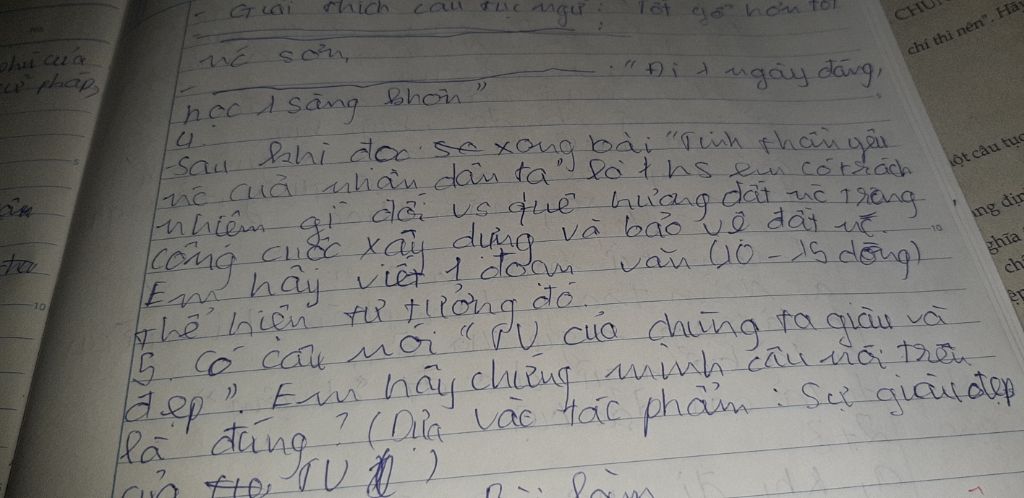 - Giải thích câu tục ngữ: Tốt gỗ hơn tốt
nc sơn,
- : "Đi 1 ngày đàng,
học 1 sàng khôn"
4.
Sau khi đọc xong bài "Tinh thần yêu
nc của nhân dân ta" là 1 hs em có trách
nhiệm gì đối vs quê hương đất nc trong
công cuộc xây dựng và bảo vệ đất nc.
Em hãy viết 1 đoạn văn (10 - 15 dòng)
thể hiện tư tưởng đó.
5. Có câu nói "TV của chúng ta giàu và
đẹp". Em hãy chứng minh câu nói trên
là đúng? (Dựa vào tác phẩm: Sự giàu đẹp
của TV )
làm
phù của
cử pháp,
10
CHU
chí thì nên". Hã
ột câu tục
ng di
ghĩa
ch